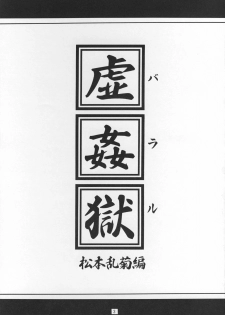 虚姦獄
バラル
松本乱菊編